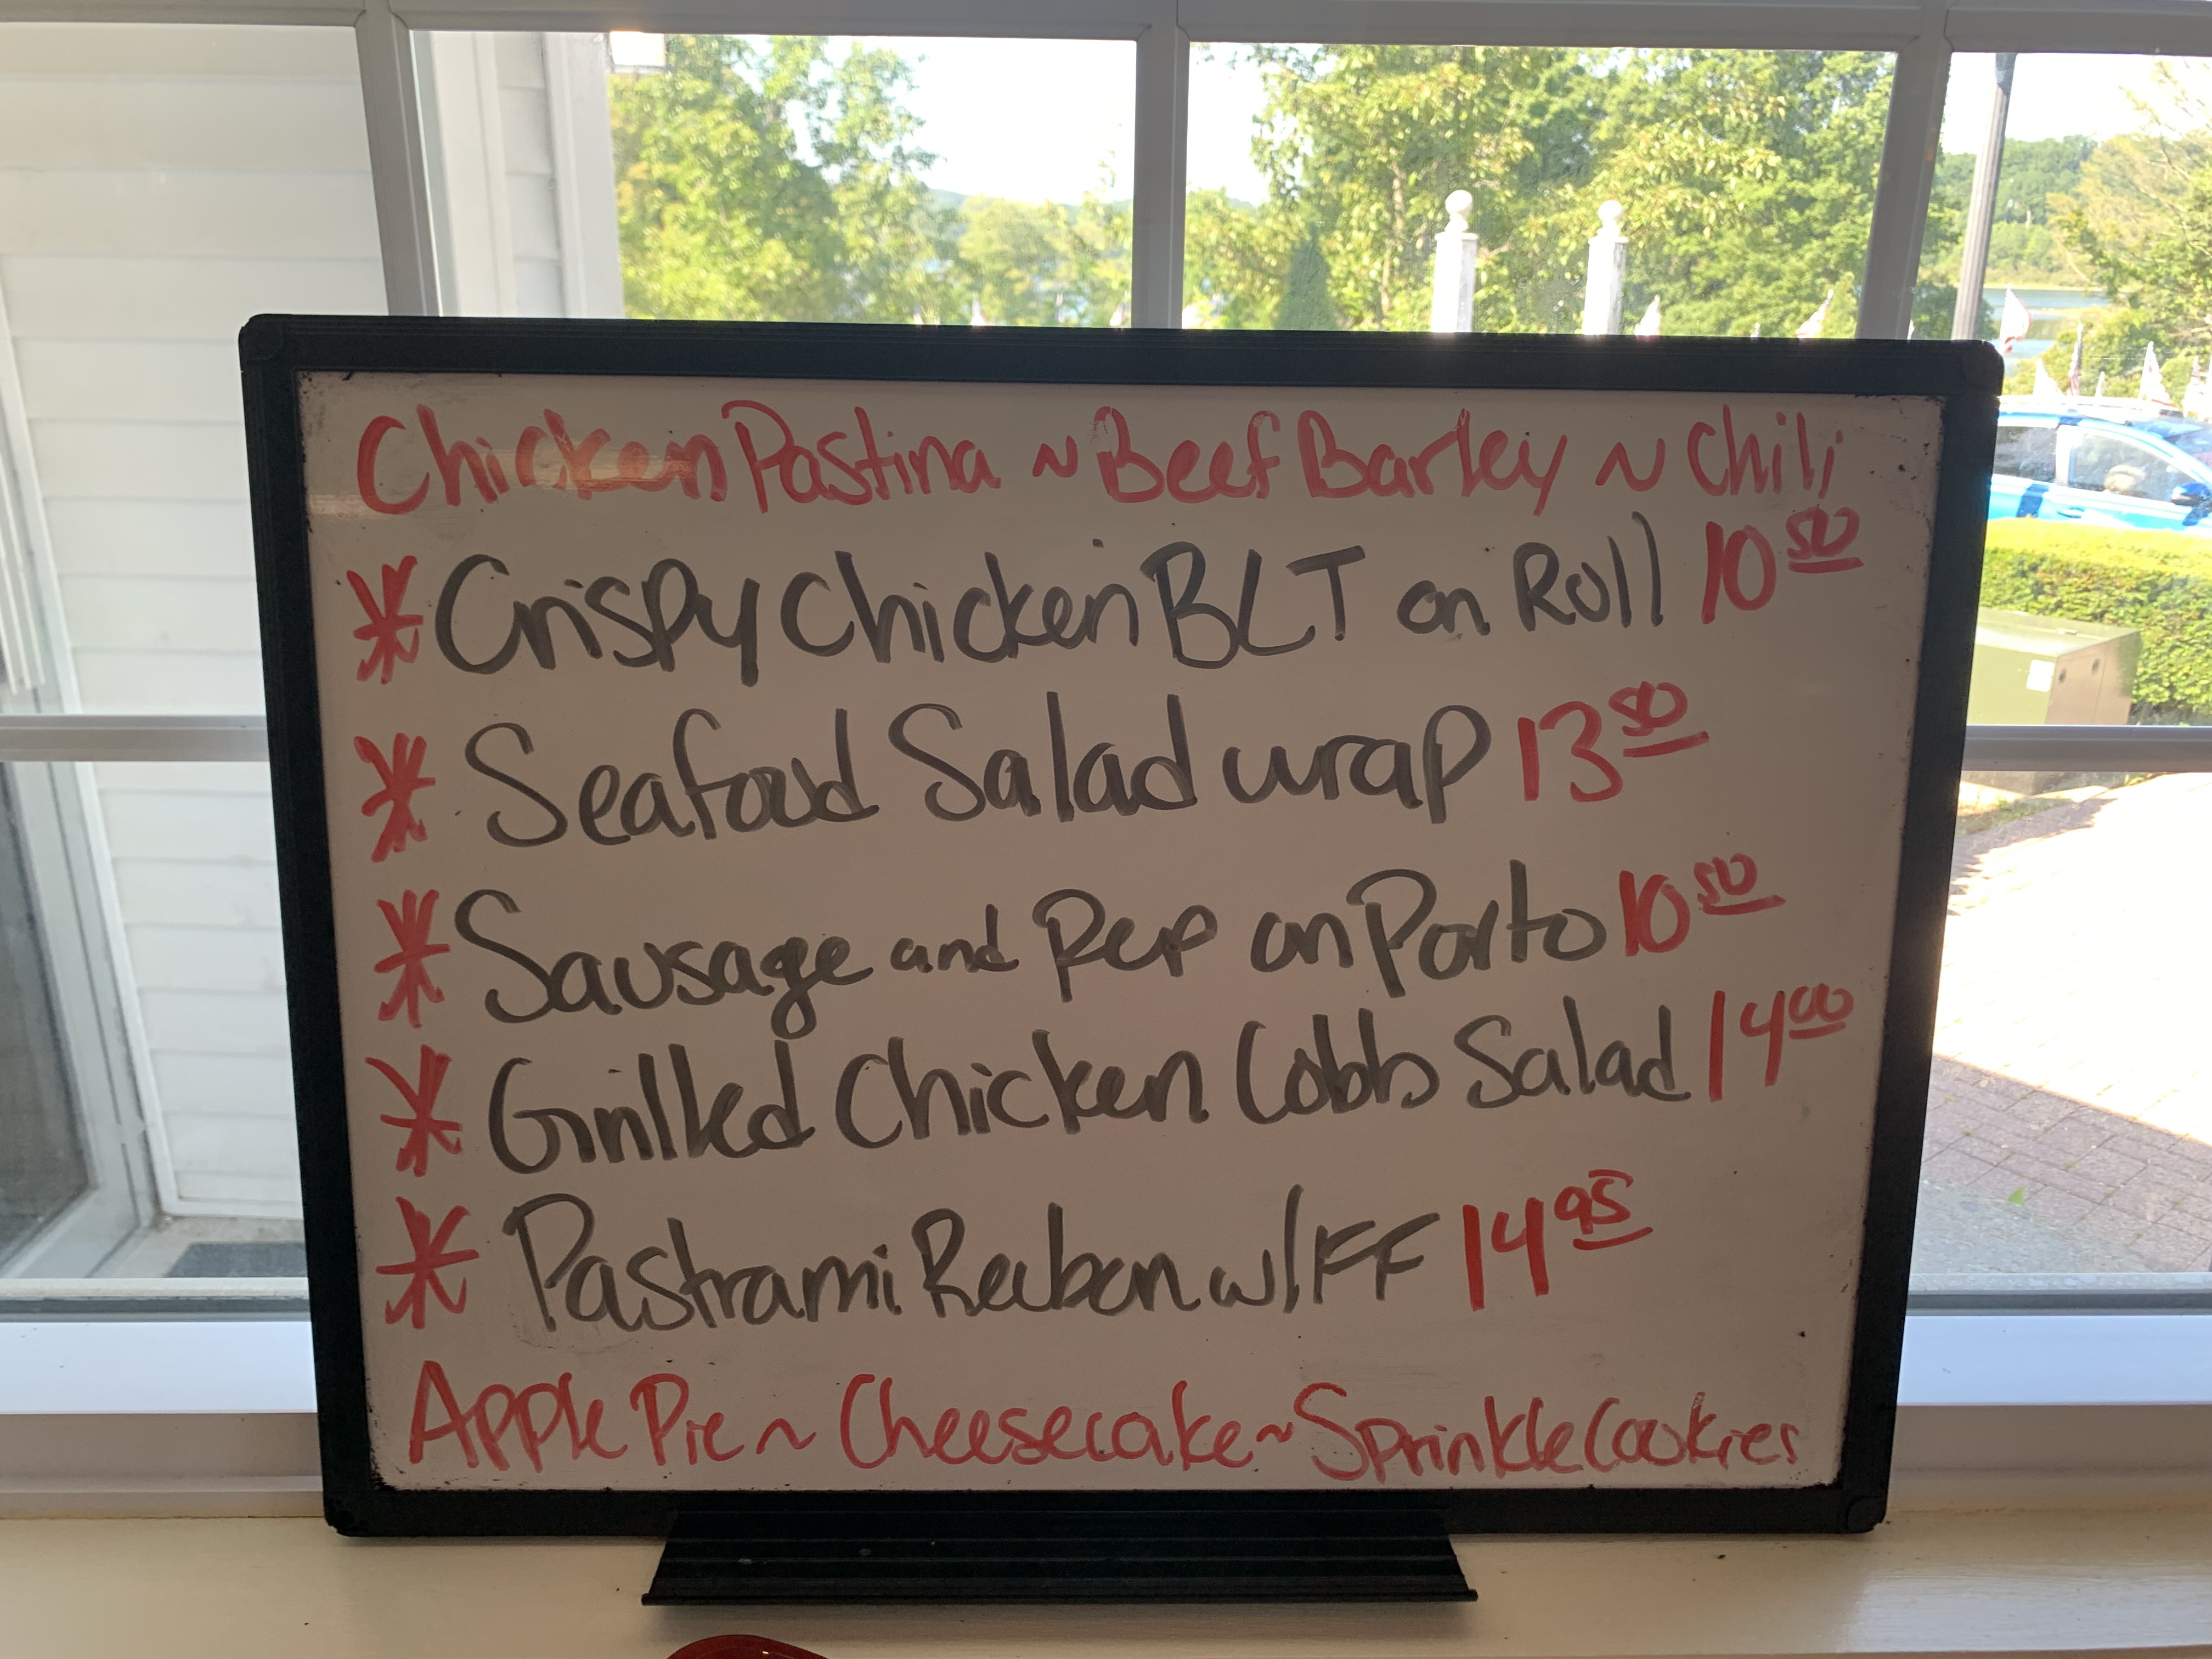 Chicken Pastina ~ Beef Barley ~ Chili
* Crispy Chicken BLT on Roll 10 50
* Seafood Salad wrap 13 50
* Sausage and Pep on Porto 10 50
* Grilled Chicken Cobb Salad 14 00
* Pastrami Reubon w/FF 14 95
Apple Pie ~ Cheesecake ~ Sprinkle Cookies